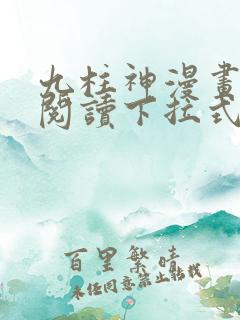 九柱神漫畫
閱讀下拉式
百里繁晴
未经同意禁止转载